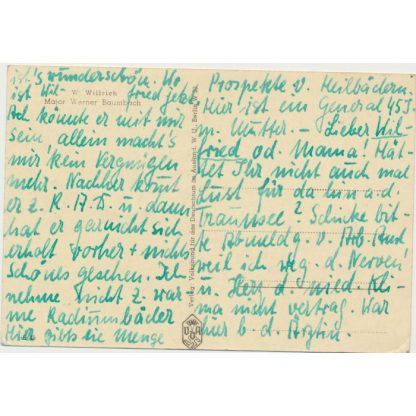 ist's wunderschön. Wo
ist Wilfried jetzt
W. Willrich
Major Werner Baumbach
Ach könnte er mit mir
sein, allein macht's
mir kein Vergnügen
mehr. Nachher kommt
er z. R.A.D. u. dann
hat er gar nicht sich
erholt vorher + nichts
Schönes gesehen. Ich
nehme nicht z. war-
me Radiumbäder
Hier gibts eine Menge
Verlag: Volksbund für das Deutschtum im Ausland, Berlin
VDA
Prospekte v. Heilbädern.
Hier ist ein General 45 J
m. Mutter. – Lieber Wil-
fried od. Mama! Hät-
tet Ihr nicht auch mal
Lust für da hin a. d.
Traunsee? Schicke bit-
te Abmeldg. v. Arb.
weil ich weg. d. Nerven
u. Herz d. med. Kli-
ma nicht vertrag. War
hier b. d. Ärztin.